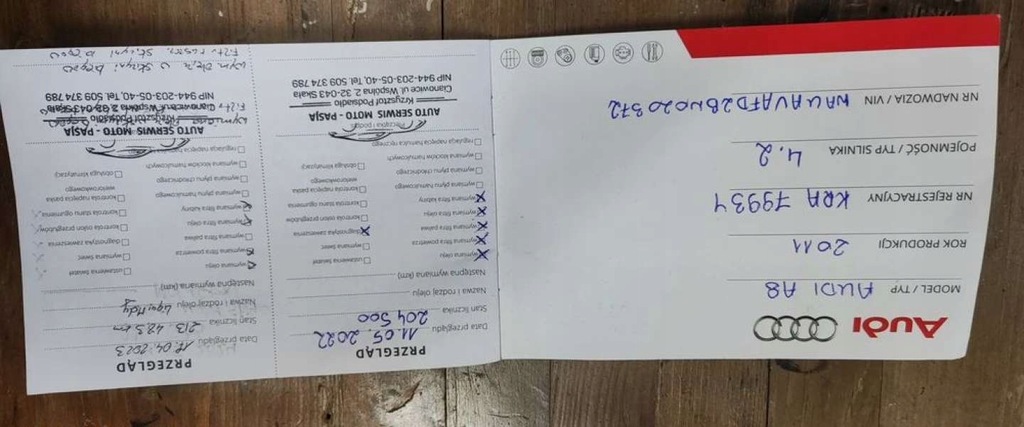 Audi
MODEL / TYP AUDI A8
ROK PRODUKCJI 2011
NR REJESTRACYJNY KRA 79934
POJEMNOŚĆ / TYP SILNIKA 4.2
NR NADWOZIA / VIN WAUAVAFD2BN020372
PRZEGLĄD
Data przeglądu 11.05.2022
Stan licznika 204500
Nazwa i rodzaj oleju
Następna wymiana (km)
wymiana oleju
ustawienia świateł
wymiana filtra powietrza
wymiana świec
wymiana filtra paliwa
diagnostyka zawieszenia
wymiana filtra oleju
kontrola osłon przegubów
wymiana filtra kabiny
kontrola stanu ogumienia
wymiana płynu hamulcowego
kontrola napięcia paska
wieloroWkowego
wymiana płynu chłodniczego
obsługa klimatyzacji
wymiana klocków hamulcowych
regulacja napięcia hamulca ręcznego
AUTO SERWIS MOTO - PASJA
Krzysztof Podsiadło
Cianowice ul. Wspólna 2, 32-043 Skała
NIP 944-203-05-40, Tel. 509 374 789
PRZEGLĄD
Data przeglądu 17.04.2023
Stan licznika 213 423 km
Nazwa i rodzaj oleju Liqui Moly
Następna wymiana (km)
wymiana oleju
ustawienia świateł
wymiana filtra powietrza
wymiana świec
wymiana filtra paliwa
diagnostyka zawieszenia
wymiana filtra oleju
kontrola osłon przegubów
wymiana filtra kabiny
kontrola stanu ogumienia
wymiana płynu hamulcowego
kontrola napięcia paska
wielorowkowego
wymiana płynu chłodniczego
obsługa klimatyzacji
wymiana klocków hamulcowych
regulacja napięcia hamulca ręcznego
AUTO SERWIS MOTO - PASJA
Krzysztof Podsiadło
Cianowice ul. Wspólna 2, 32-043 Skała
NIP 944-203-05-40, Tel. 509 374 789
wym oleju w skrzyni biegów
Filtr skrzyni biegów